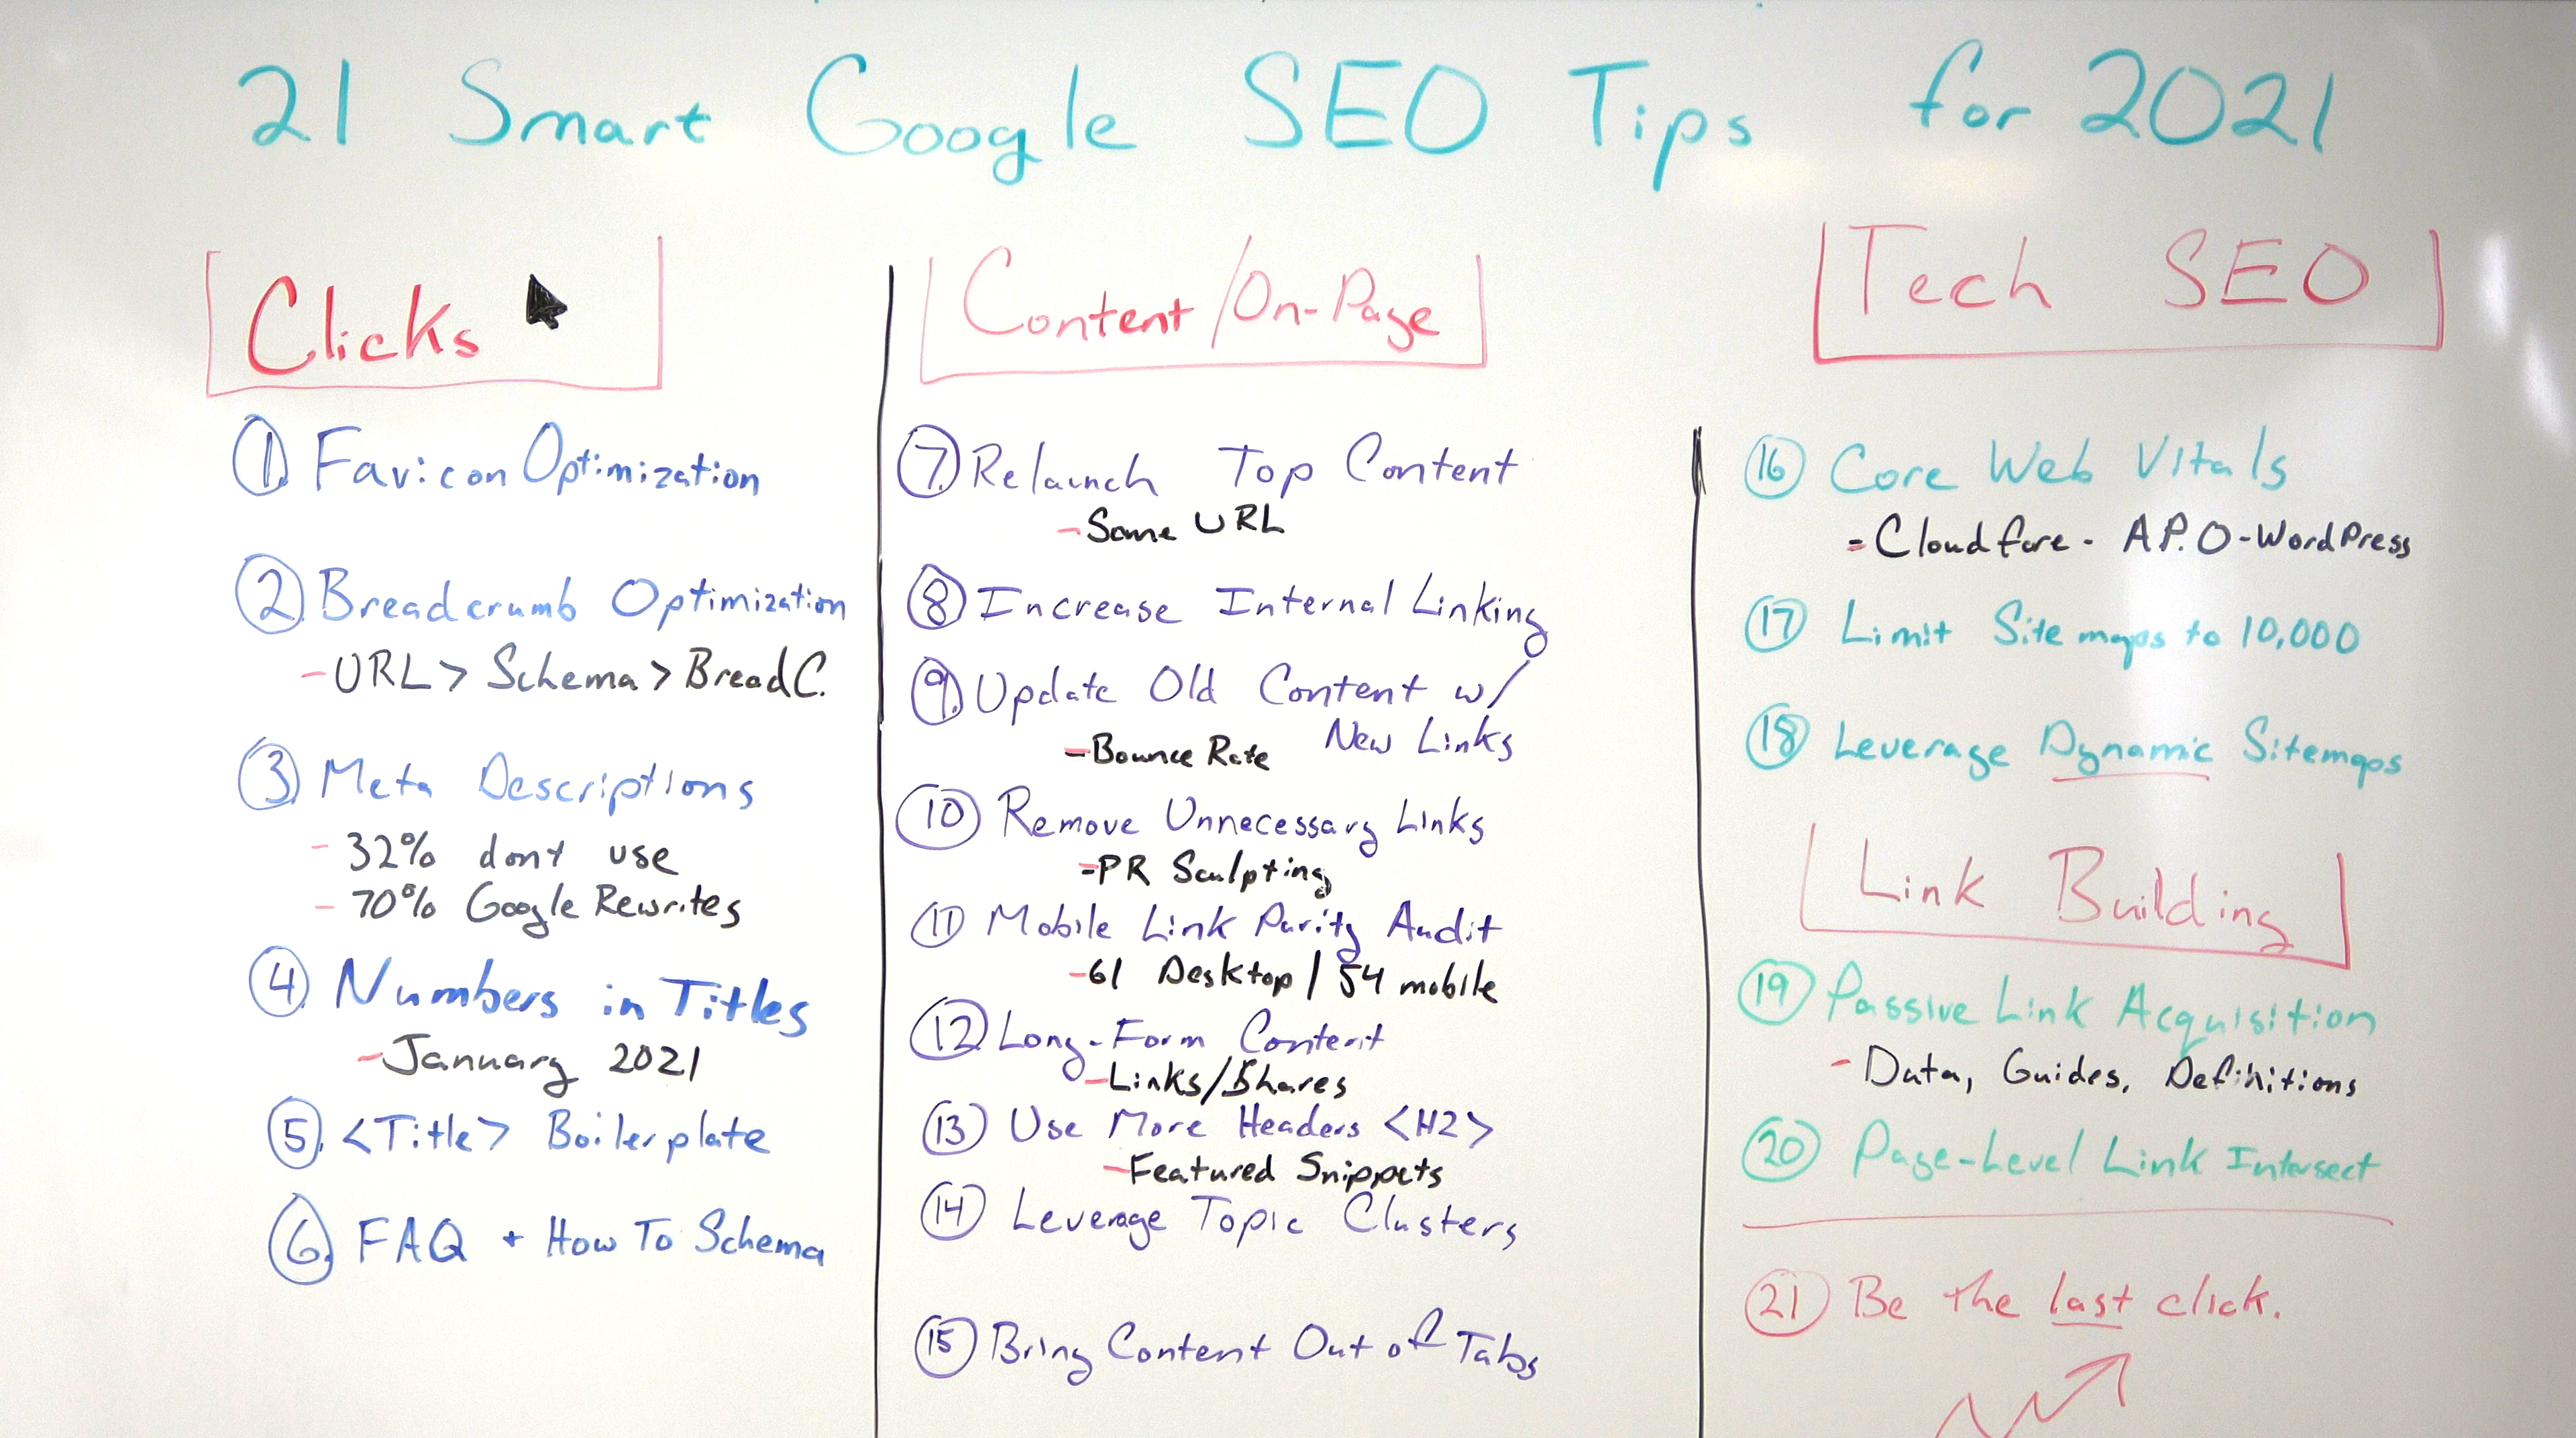 21 Smart Google SEO Tips for 2021
Clicks
1. Favicon Optimization
2. Breadcrumb Optimization
- URL > Schema > BreadC.
3. Meta Descriptions
- 32% dont use
- 70% Google Rewrites
4. Numbers in Titles
- January 2021
5. <Title> Boilerplate
6. FAQ + How To Schema
Content/On-Page
7. Relaunch Top Content
- Same URL
8 Increase Internal Linking
9. Update Old Content w/
New Links
- Bounce Rate
10 Remove Unnecessary Links
- PR Sculpting
11 Mobile Link Parity Audit
- 61 Desktop / 54 mobile
12. Long-Form Content
- Links/Shares
13 Use More Headers <H2>
- Featured Snippets
14 Leverage Topic Clusters
15 Bring Content Out of Tabs
Tech SEO
16 Core Web Vitals
- Cloudfare - A.P.O - WordPress
17 Limit Sitemaps to 10,000
18 Leverage Dynamic Sitemaps
Link Building
19 Passive Link Acquisition
- Data, Guides, Definitions
20 Page-Level Link Intersect
21 Be the last click.